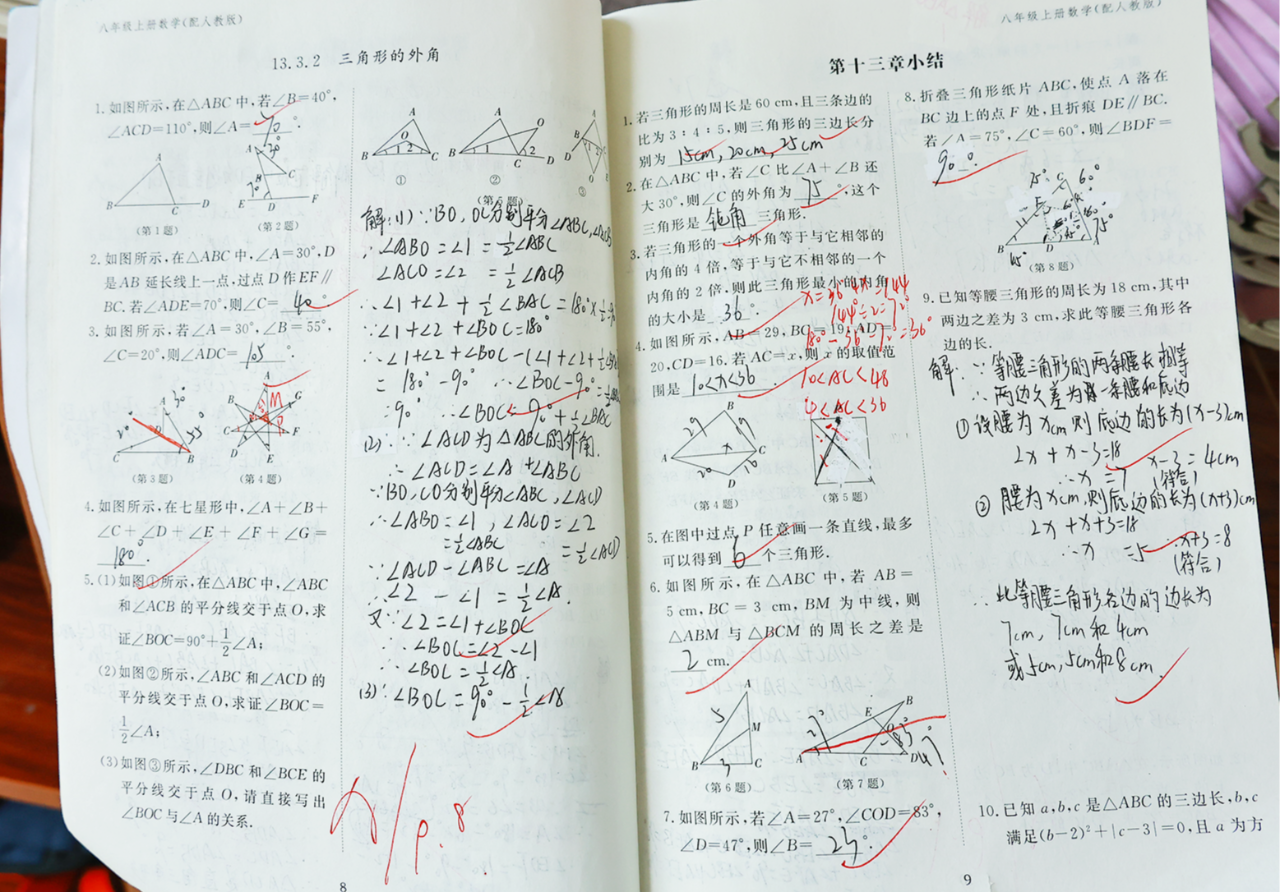 八年级上册数学(配人教版)
13.3.2 三角形的外角
1.如图所示,在△ABC中,若∠B=40°,
∠ACD=110°,则∠A= 70°.
(第1题) (第2题)
2.如图所示,在△ABC中,∠A=30°,D
是AB延长线上一点,过点D作EF∥
BC.若∠ADE=70°,则∠C= 40°.
3.如图所示,若∠A=30°,∠B=55°,
∠C=20°,则∠ADC= 105°.
(第3题) (第4题)
4.如图所示,在七星形中,∠A+∠B+
∠C+∠D+∠E+∠F+∠G=
180°.
5.(1)如图①所示,在△ABC中,∠ABC
和∠ACB的平分线交于点O,求
证∠BOC=90°+1/2∠A;
(2)如图②所示,∠ABC和∠ACD的
平分线交于点O,求证∠BOC=
1/2∠A;
(3)如图③所示,∠DBC和∠BCE的
平分线交于点O,请直接写出
∠BOC与∠A的关系.
① ② ③
(第5题)
解:(1)∵BO,OC分别平分∠ABC,∠ACB
∴∠ABO=∠1=1/2∠ABC
∠ACO=∠2=1/2∠ACB
∴∠1+∠2+1/2∠BAC=180°×1/2=90°
∵∠1+∠2+∠BOC=180°
∴∠1+∠2+∠BOC-(∠1+∠2+1/2∠BAC)
=180°-90° ∴∠BOC-90°=1/2∠BAC
=90° ∴∠BOC=90°+1/2∠BAC
(2)∵∠ACD为△ABC的外角.
∴∠ACD=∠A+∠ABC
∵BO,CO分别平分∠ABC,∠ACD
∴∠ABO=∠1,∠ACO=∠2
=1/2∠ABC =1/2∠ACD
∵∠ACD-∠ABC=∠A
∴∠2-∠1=1/2∠A.
又∵∠2=∠1+∠BOC
∴∠BOC=∠2-∠1
∴∠BOC=1/2∠A.
(3)∠BOC=90°-1/2∠A
P.8
8
八年级上册数学(配人教版)
第十三章小结
1.若三角形的周长是60 cm,且三条边的
比为3:4:5,则三角形的三边长分
别为 15cm,20cm,25cm
2.在△ABC中,若∠C比∠A+∠B还
大30°,则∠C的外角为 75°,这个
三角形是 钝角 三角形.
3.若三角形的一个外角等于与它相邻的
内角的4倍,等于与它不相邻的一个
内角的2倍,则此三角形最小的内角
的大小是 36°.
x=36 4x=144
144÷2=72°
180-36-72=36°
4.如图所示,AB=29,BC=19,AD=
20,CD=16.若AC=x,则x的取值范
围是 10<x<36.
10<AC<48
4<AC<36
(第4题) (第5题)
5.在图中过点P任意画一条直线,最多
可以得到 6 个三角形.
6.如图所示,在△ABC中,若AB=
5 cm,BC=3 cm,BM为中线,则
△ABM与△BCM的周长之差是
2 cm.
(第6题) (第7题)
7.如图所示,若∠A=27°,∠COD=83°,
∠D=47°,则∠B= 23°.
8.折叠三角形纸片ABC,使点A落在
BC边上的点F处,且折痕DE∥BC.
若∠A=75°,∠C=60°,则∠BDF=
90°.
(第8题)
9.已知等腰三角形的周长为18 cm,其中
两边之差为3 cm,求此等腰三角形各
边的长.
解:∵等腰三角形的两条腰长相等
∴两边之差为一条腰和底边
①设腰为xcm则底边的长为(x-3)cm
2x+x-3=18 x-3=4cm
∴x=7 (符合)
②腰为xcm,则底边的长为(x+3)cm
2x+x+3=18
∴x=5 x+3=8
(符合)
∴此等腰三角形各边的边长为
7cm,7cm和4cm
或5cm,5cm和8cm.
10.已知a,b,c是△ABC的三边长,b,c
满足(b-2)²+|c-3|=0,且a为方
9